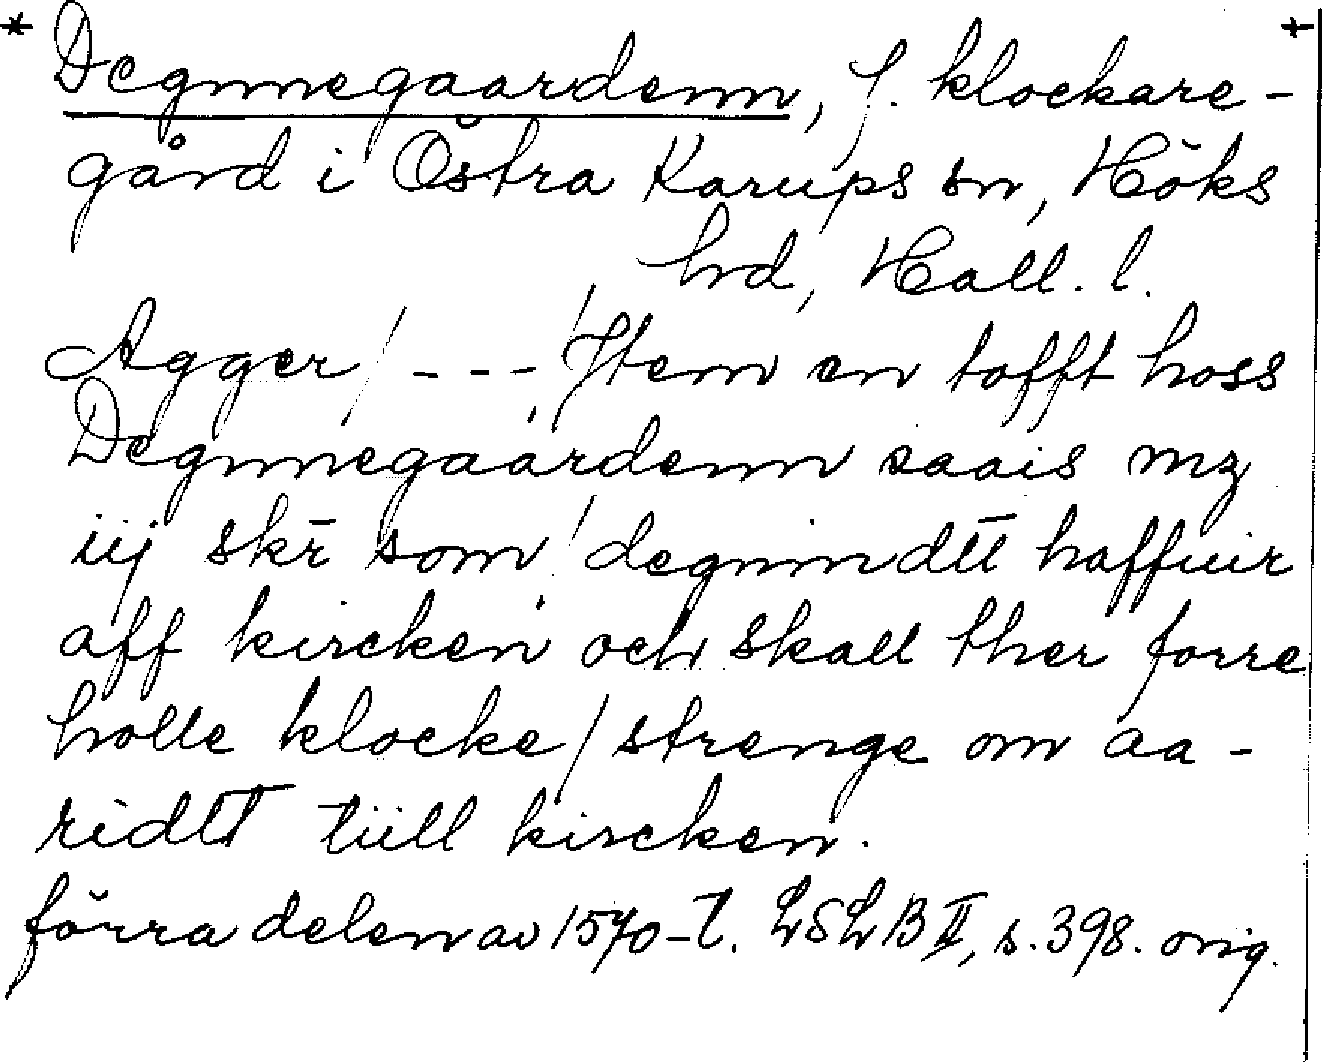 * Degnnegaardenn, f. klockare- +
gård i Östra Karups sn, Höks
hrd, Hall. l.
Agger / --- / Jtem en tofft hoss
Degnnegaardenn saais mz
iij skr̄ som / degnindtt haffuir
aff kircken och skall ther forre
holle klocke / strenge om aa-
ridtt tiill kircken.
förra delen av 1570-t. LSLB II, s. 398. orig.